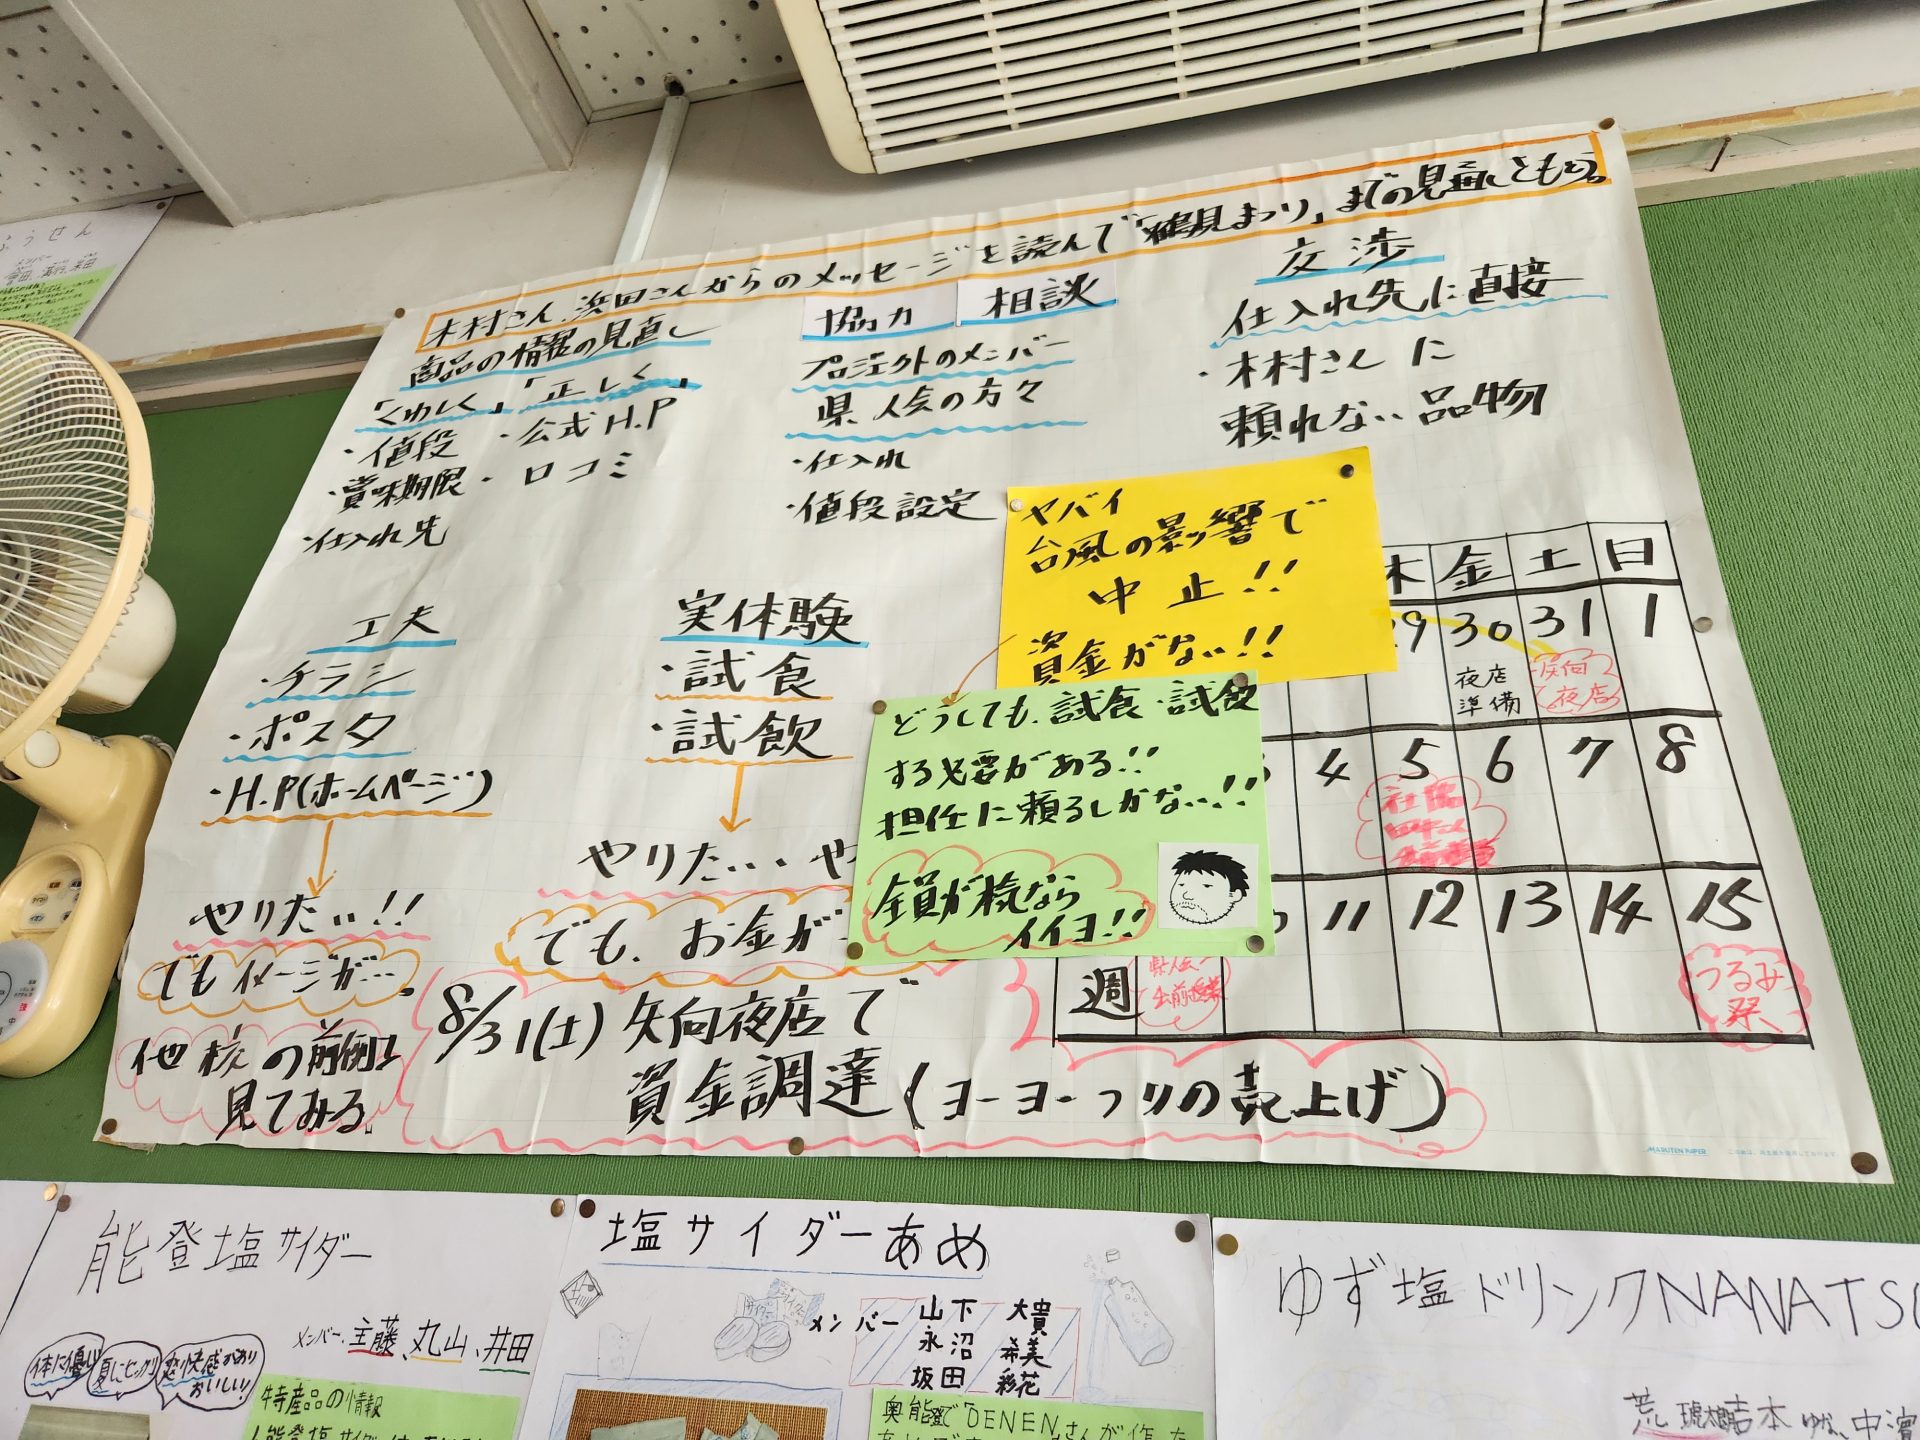 木村さん、浜田さんからのメッセージを読んで「鶴見まつり」までの見直しをもう。
商品の情報の見直し
「くわしく」「正しく」
・値段
・公式H.P
・賞味期限
・口コミ
・仕入れ先
協力
相談
プロジェクトのメンバー
県人会の方々
・仕入れ
・値段設定
交渉
仕入れ先に直接
・木村さんに
頼れない品物
工夫
・チラシ
・ポスタ
・H.P(ホームページ)
やりたい!!
でもイメージが…。
他校の前例
見てみる。
実体験
・試食
・試飲
やりたい・や
でも、お金が
ヤバイ
台風の影響で
中止!!
資金がない!!
どうしても、試食・試飲
する必要がある!!
担任に頼るしかない!!
全員が核なら
イイヨ!!
8/31(土)矢向夜店で
資金調達(ヨーヨーつりの売上げ)
木 金 土 日
29 30 31 1
夜店
準備
矢向
夜店
4 5 6 7 8
社協
11 12 13 14 15
週
県人会
出前授業
つるみ
祭
MARUTEN PAPER
ようせん
メンバー
能登塩サイダー
メンバー 主藤、丸山、井田
体に優し
夏にピッタリ
爽快感があり
おいしい!
特産品の情報
塩サイダーあめ
メンバー
山下 大貴
永沼 希美
坂田 彩花
奥能登で"DENEN"さんが作った
ゆず塩ドリンクNANATS
荒 琥太朗 吉本 ゆな、中濵